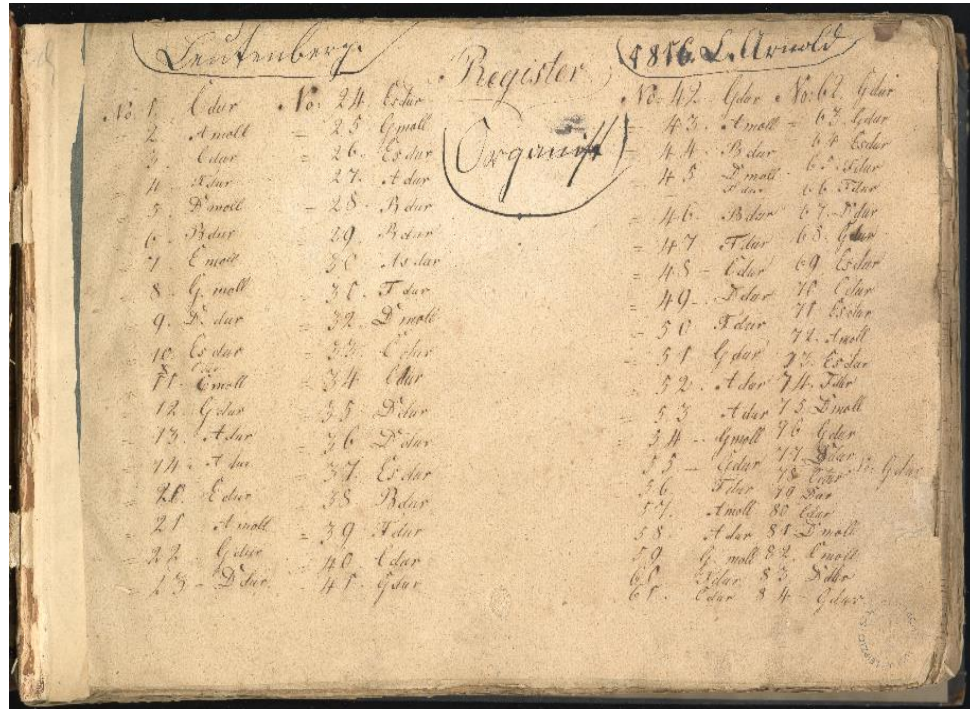 Leutenberg.
1816. L. Arnold
Register
Organist
No. 1. Cdur
= 2. Amoll
= 3. Cdur
= 4. Fdur
= 5. Dmoll
= 6. Bdur
= 7. Emoll
= 8. G. moll
= 9. D. dur
= 10. Esdur
= 11. Cmoll
= 12. Gdur
= 13. Adur
= 14. Adur
20. Edur
= 21 Amoll
= 22 Gdur
= 23 - Ddur
No. 24. Esdur
= 25 Gmoll
= 26. Esdur
= 27. Adur
= 28. Bdur
29. Bdur
30 Asdur
= 31. Fdur
= 32. Dmoll
= 33. Cdur
= 34 Cdur
= 35. Ddur
= 36 Ddur
= 37. Esdur
= 38 Bdur
= 39 Adur
= 40. Cdur
= 41. Gdur
No. 42. Gdur
= 43. Amoll
= 44. Bdur
= 45 Dmoll
= 46. Bdur
= 47 Fdur
= 48 - Cdur
= 49 - Ddur
= 50 Fdur
= 51 Gdur
= 52. Adur
= 53 Adur
= 54 - Gmoll
= 55 - Gdur
56. Fdur
57. Amoll
58. Adur
59. G. moll
60 Fdur
61. Cdur
No: 62. Gdur
= 63. Gdur
64 Esdur
65. Fdur
66. Fdur
67. Ddur
68. Gdur
69. Esdur
70 Cdur
71 Esdur
72. Amoll
73. Esdur
74. Fdur
75 Dmoll
76 Gdur
77 Ddur
78
79 Dur
80 Cdur
81 Dmoll
82. Cmoll
83. Ddur
84 - Gdur